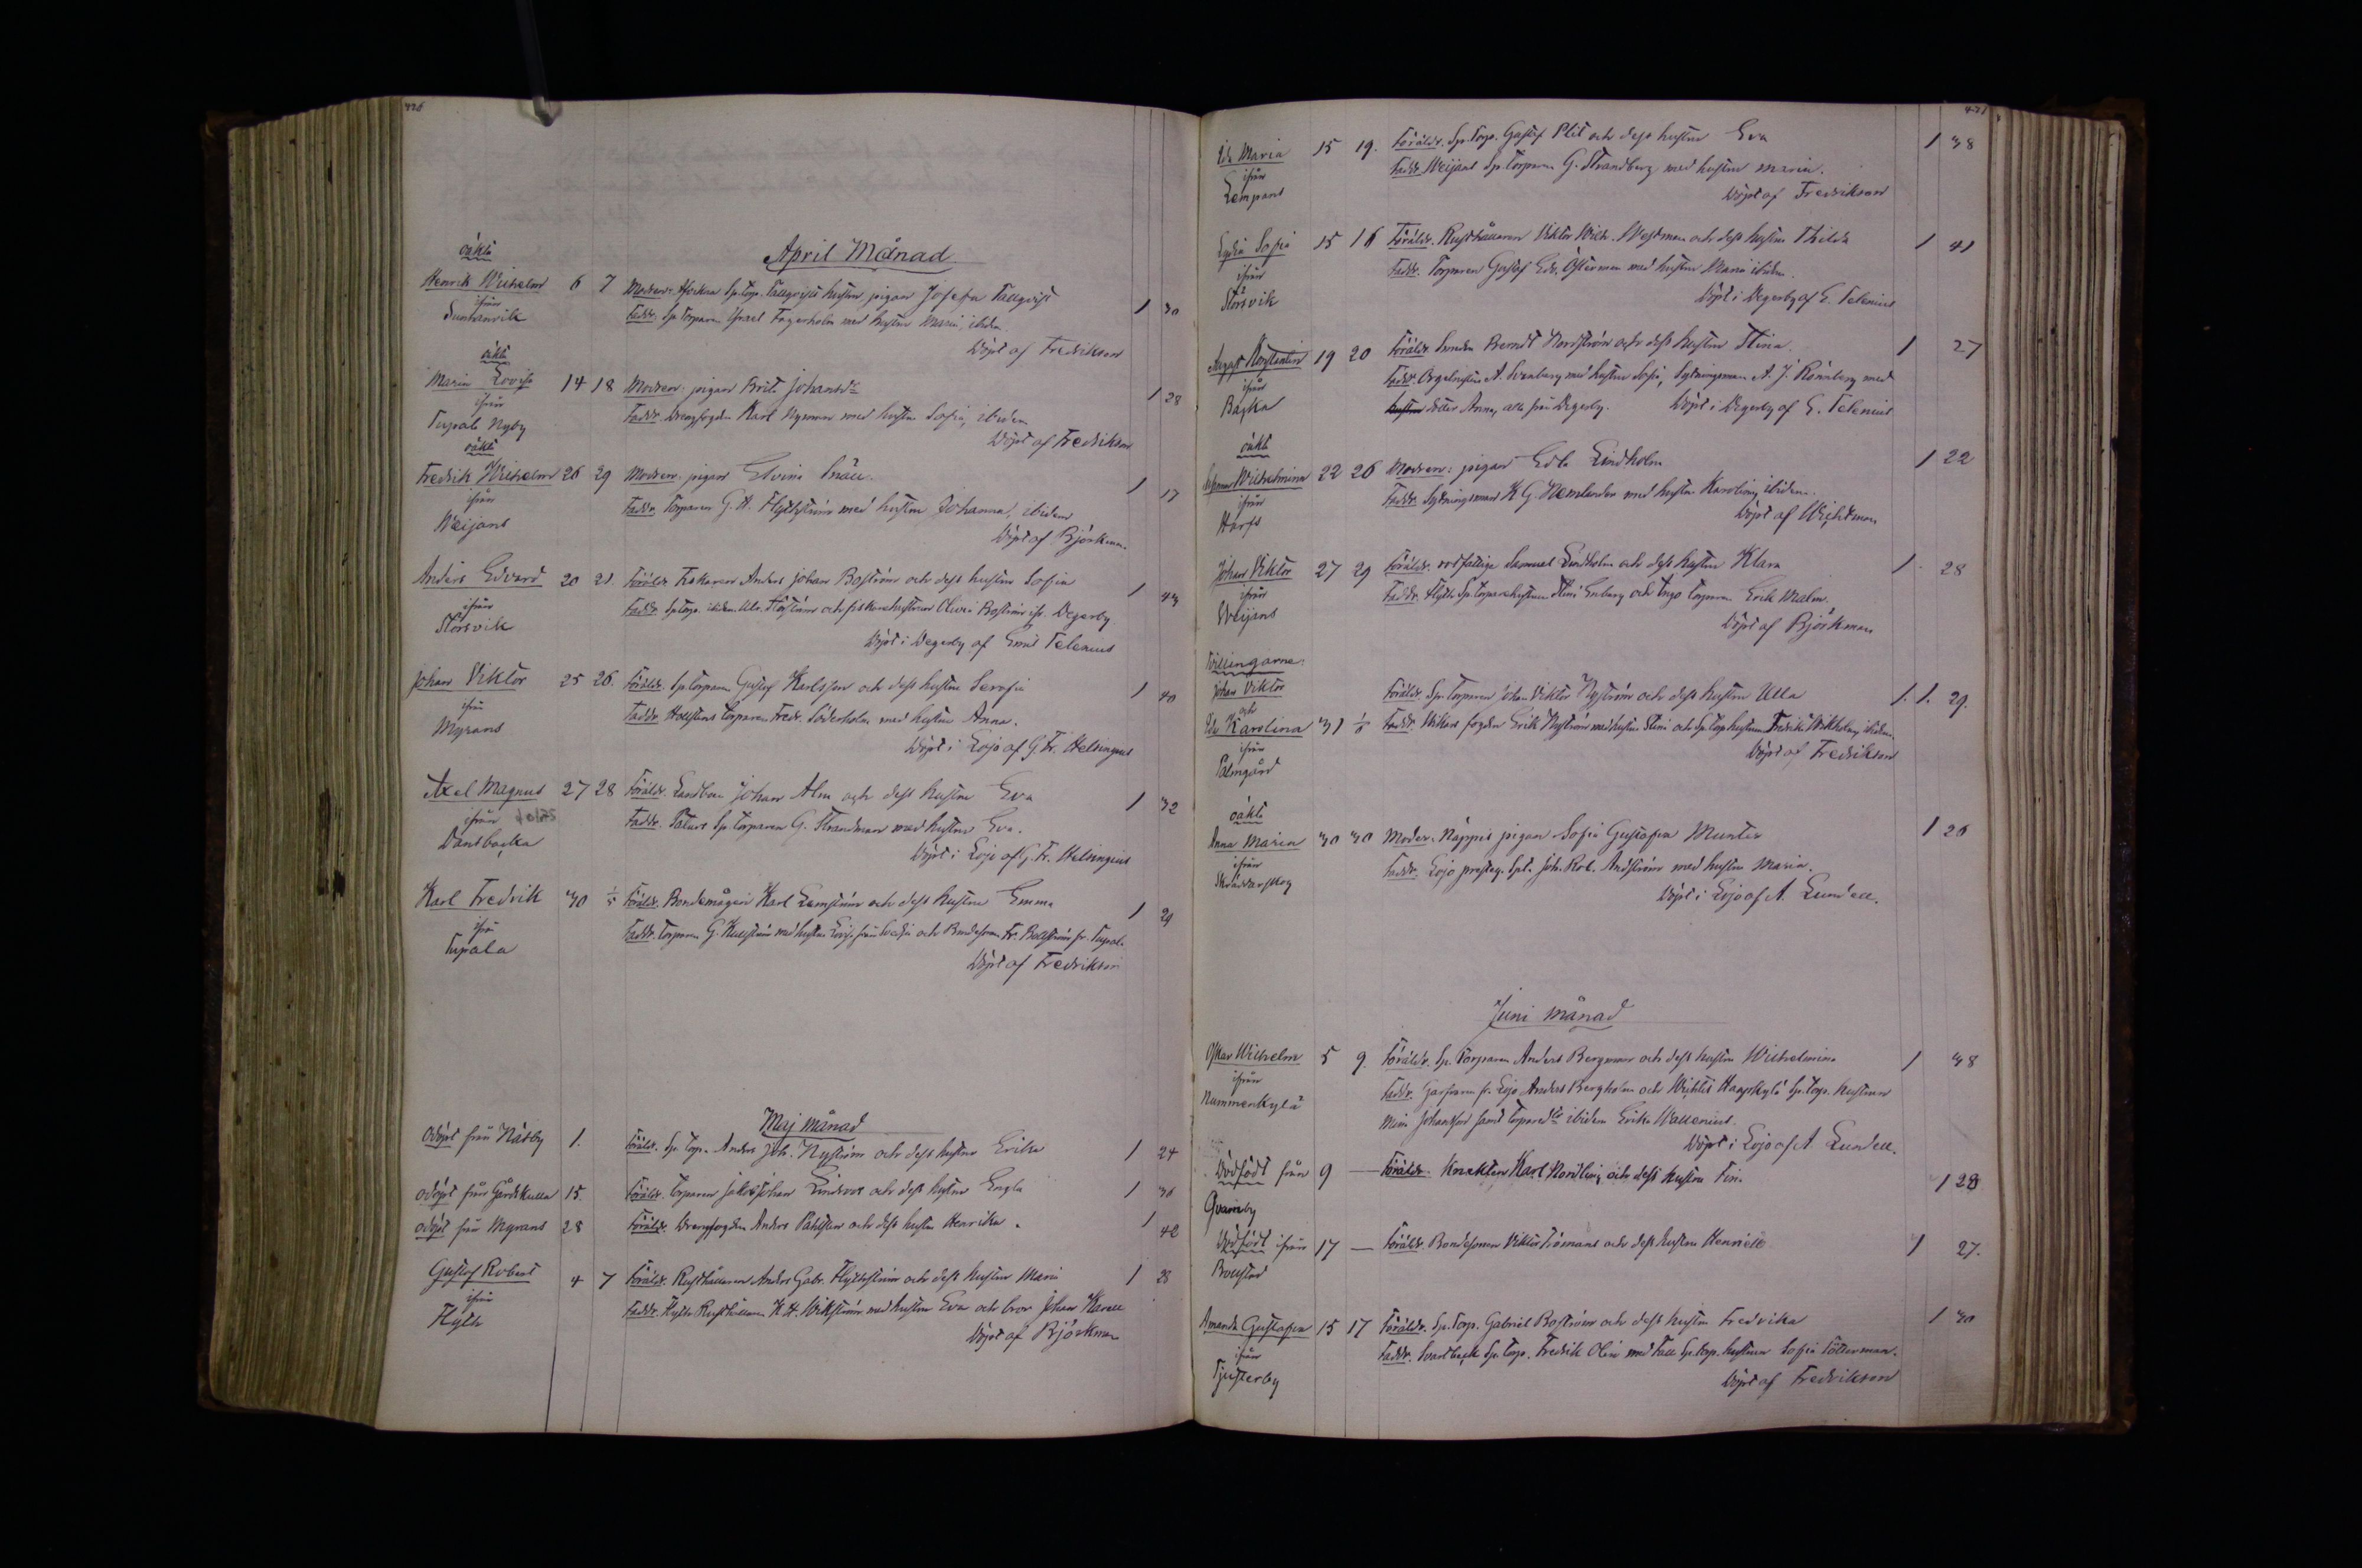 426
April Månad
oäkta
Henrik Wilhelm 6 7 Modren: Afsked. Sp.torp. Tallqvists hustru pigan Josefa Tallqvist 1 30
ifrån
Faddr. Sp. Torparen Israel Fagerholm med hustru Maria, ibidem.
Suntanvik
Döpt af Fredrikson
oäkta
Maria Lovisa 14 18 Modren: pigan Brita Johansdr 1 28
ifrån
Faddr. Drengfogden Karl Nyman med hustru Sofia, ibidem
Supala Nyby
Döpt af Fredrikson
oäkta
Fredrik Wilhelm 26 29 Modren: pigan Elvina 1 17
ifrån
Faddr. Torparen G. A. Flythström med hustru Johanna, ibidem
Weijans
Döpt af Björkman.
Anders Edvard 20 21. Föräldr. Fiskaren Anders Johan Boström och dess hustru Sofia 1 43
ifrån
Faddr. Sp.torp. ibidem och fiskarehustrun Olivia Boström ifr. Degerby
Storsvik
Döpt i Degerby af Emil Telenius
Johan Viktor 25 26. Föräldr. Sp.torparen Gustaf Karlsson och dess hustru Serafia 1 40
ifrån
Faddr. Torparen Fredr. Söderholm med hustru Anna.
Myrans
Döpt i Lojo af G. Fr. Helsingius
Axel Magnus 27 28 Föräldr. Landbon Johan Alm och dess hustru Eva 1 32
ifrån
Faddr. Påtars Sp. torparen G. Strandman med hustru Eva.
Dansbacka
Döpt i Lojo af G. Fr. Helsingius
Karl Fredrik 30 1/5 Föräldr. Bondemågen Karl Lemström och dess hustru Emma 1 29
ifrån
Faddr. Torparen G. med hustru Lovisa från och Bondesonen Fr. fr. Supala
Supala
Döpt af Fredrikson
Maj månad
Odöpt från Näsby 1. Föräldr. Sp. Torp. Anders Joh. Nyström och dess hustru Erika 1 24
odöpt från Gårdskulla 15. Föräldr. Torparen Jakob Johan Lindroos och dess hustru Engla 1 36
odöpt från Myrans 28 Föräldr. Drengfogden Anders Påhlsten och dess hustru Henrika. 1 42
Gustaf Robert 4 7 Föräldr. Rusthållaren Anders Gabr. Flythström och dess hustru Maria 1 28
ifrån
Faddr. Flyth Rusthållaren K. H. Wikström med hustru Eva och bror Johan Karell
Flyth
Döpt af Björkman
427
Ida Maria 15 19. Föräldr. Sp. Torp. Gustaf Plit och dess hustru Eva 1 38
ifrån
Faddr. Weijans Sp. torparen G. Strandberg med hustru Maria.
Lempans
Döpt af Fredrikson
Lydia Sofia 15 16 Föräldr. Rusthållaren Viktor Wilh. Westman och dess hustru Thilda 1 41
ifrån
Faddr. Torparen Gustaf Edv. Österman med hustru Maria ibidem.
Storsvik
Döpt i Degerby af E. Telenius
August Konstantin 19 20 Föräldr. Smeden Berndt Nordström och dess hustru Stina. 1 27
ifrån
Faddr. Orgelnisten A. Svanberg med hustru Sofia, Sytningsman A. J. Rönnberg med
Båcka
hustru dotter Anna, alla från Degerby. Döpt i Degerby af E. Telenius
oäkta
Wilhelmina 22 26 Modren: pigan Edla Lindholm 1 22
ifrån
Faddr. Sytningsman K G. Nemlander med hustru Karolina, ibidem.
Harfs
Döpt af Wichtman
Johan Viktor 27 29 Föräldr. rotfattige Samuel Lindholm och dess hustru Klara 1 28
ifrån
Faddr. Flyth. Sp.torparehustrun Stina Enberg och Ingo torparen Erik Malm.
Weijans
Döpt af Björkman
Tvillingarne:
Johan Viktor Föräldr. Sp. Torparen Johan Viktor Nyström och dess hustru Ulla 1. 1. 29.
och
Ida Karolina 31 1/6 Faddr. fogden Erik Nyström med hustru Stina och Sp.torp.hustrun Fredrika Wikholm, ibidem.
ifrån
Döpt af Fredrikson
Palmgård
oäkta
Anna Maria 30 30 Moder. Näppis pigan Sofia Gustafva Munter 1 26
ifrån
Faddr. Lojo prosteg. Spt. Joh. Rob. Andström med hustru Maria.
Skräddarskog
Döpt i Lojo af A. Lundell.
Juni månad
Oskar Wilhelm 5 9. Föräldr. Sp. Torparen Anders Bergman och dess hustru Wilhelmina 1 38
ifrån
Faddr. Garfvaren fr. Lojo Anders Bergholm och Wichtis Haapkylä Sp. torp. hustrun
Nummenkylä
Mina Johansson samt Torparedr ibidem Erika Wallenius.
Döpt i Lojo af A Lundell.
Dödfödt från 9 — Föräldr. Knekten Karl Nordling och dess hustru Fin. 1 28
Qvarnby
Dödfödt ifrån 17 — Föräldr. Bondesonen Viktor Frimans och dess hustru Henriette 1 27.
Amanda Gustafva 15 17 Föräldr. Sp. Torp. Gabriel Boström och dess hustru Fredrika 1 30
ifrån
Faddr. Svartbäck Sp. Torp. Fredrik Olin med Tall Sp. torp. hustrun Sofia Sölterman.
Tjusterby
Döpt af Fredrikson